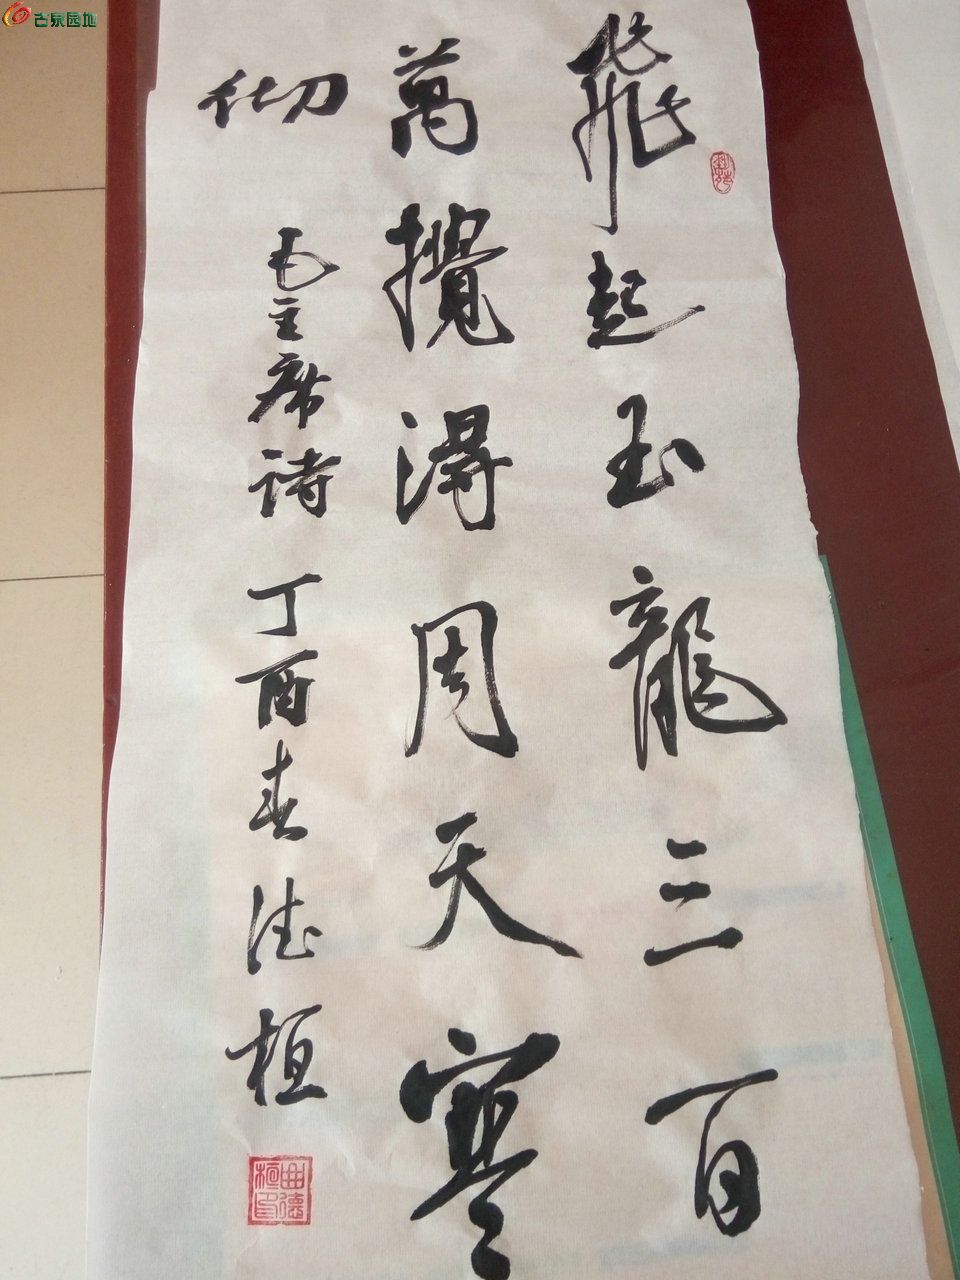 飛起玉龍三百
萬攪得周天寒
彻
毛主席诗丁酉春德桓
曲德桓印
古泉园地